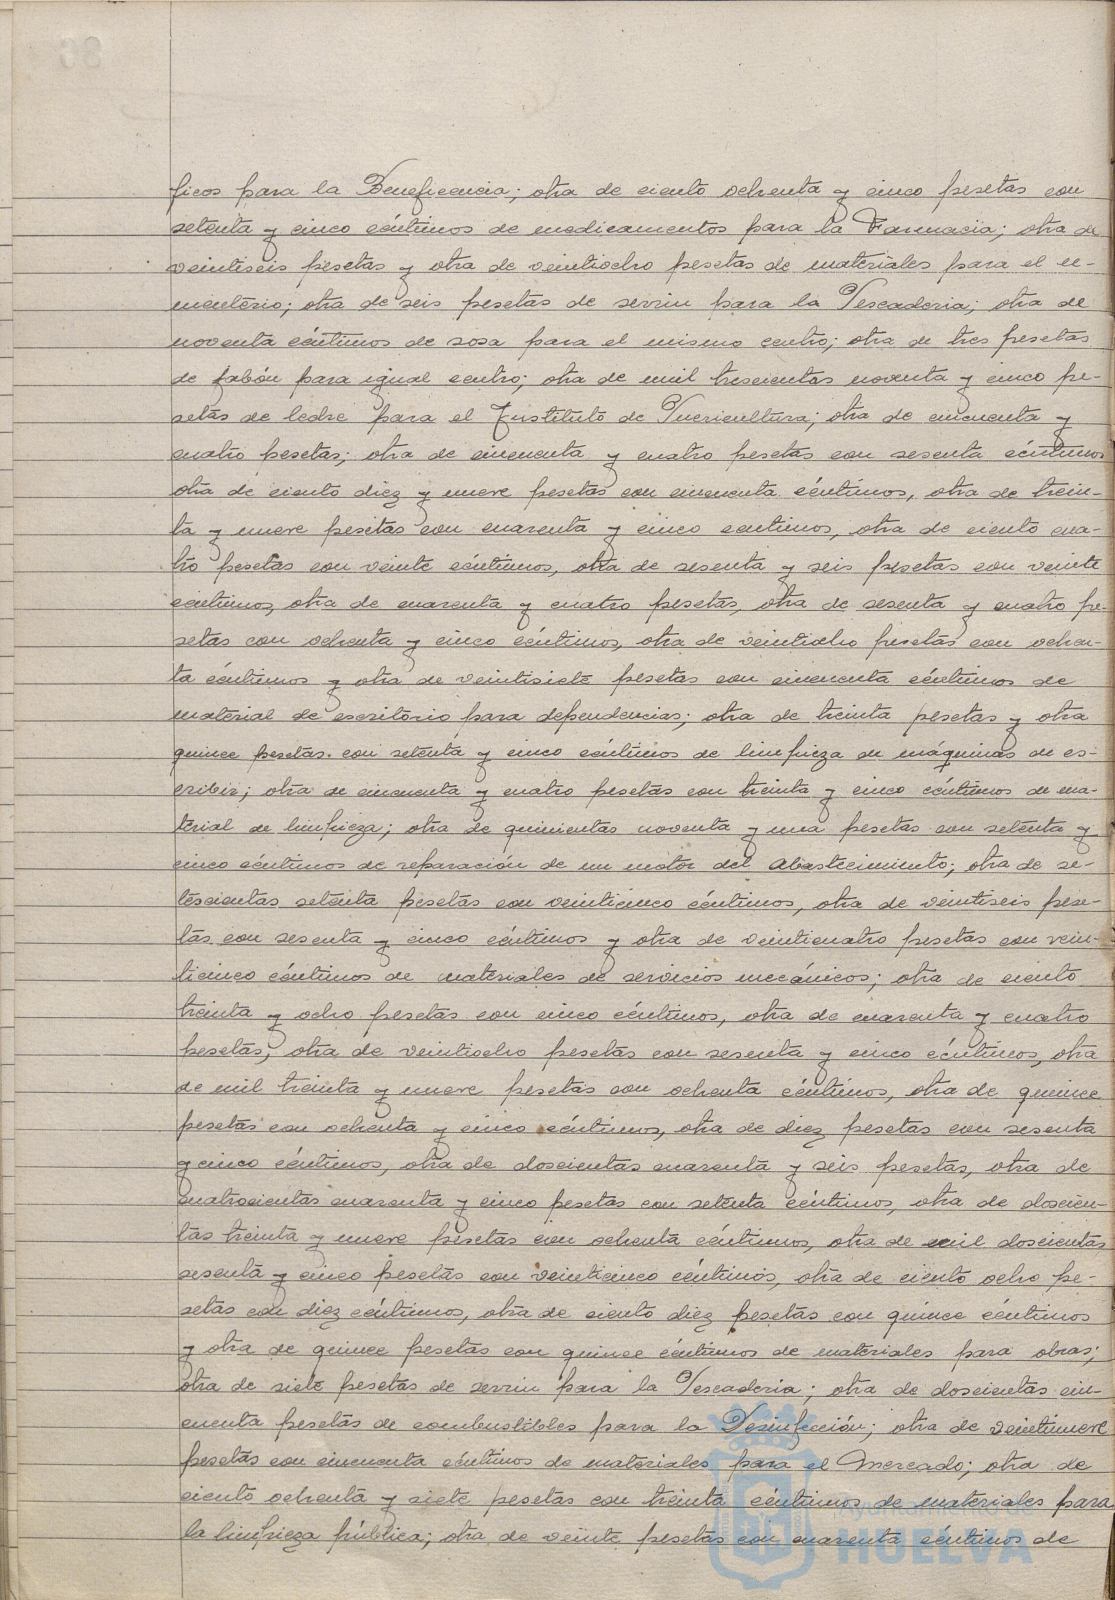 ficos para la Beneficencia; otra de ciento ochenta y cinco pesetas con
setenta y cinco céntimos de medicamentos para la Farmacia; otra de
veintiseis pesetas y otra de veintiocho pesetas de materiales para el ce-
menterio; otra de seis pesetas de serrin para la Pescaderia; otra de
noventa céntimos de sosa para el mismo centro; otra de tres pesetas
de jabón para igual centro; otra de mil trescientas noventa y cinco pe-
setas de leche para el Instituto de Puericultura; otra de cincuenta y
cuatro pesetas; otra de cincuenta y cuatro pesetas con sesenta céntimos
otra de ciento diez y nueve pesetas con cincuenta céntimos, otra de trein-
ta y nueve pesetas con cuarenta y cinco centimos, otra de ciento cua-
tro pesetas con veinte céntimos, otra de sesenta y seis pesetas con veinte
centimos, otra de cuarenta y cuatro pesetas, otra de sesenta y cuatro pe-
setas con ochenta y cinco céntimos, otra de veintiocho pesetas con ochen-
ta céntimos y otra de veintisiete pesetas con cincuenta céntimos de
material de escritorio para dependencias; otra de treinta pesetas y otra
quince pesetas con setenta y cinco céntimos de limpieza de máquinas de es-
cribir; otra de cincuenta y cuatro pesetas con treinta y cinco céntimos de ma-
terial de limpieza; otra de quinientas noventa y una pesetas con setenta y
cinco céntimos de reparación de un motor del abastecimiento; otra de se-
tescientas setenta pesetas con veinticinco céntimos, otra de veintiseis pese-
tas con sesenta y cinco céntimos y otra de veinticuatro pesetas con vein-
ticinco céntimos de materiales de servicios mecánicos; otra de ciento
treinta y ocho pesetas con cinco céntimos, otra de cuarenta y cuatro
pesetas, otra de veintiocho pesetas con sesenta y cinco céntimos, otra
de mil treinta y nueve pesetas con ochenta céntimos, otra de quince
pesetas con ochenta y cinco céntimos, otra de diez pesetas con sesenta
y cinco céntimos, otra de doscientas cuarenta y seis pesetas, otra de
cuatrocientas cuarenta y cinco pesetas con setenta céntimos, otra de doscien-
tas treinta y nueve pesetas con ochenta céntimos, otra de mil doscientas
sesenta y cinco pesetas con veinticinco céntimos, otra de ciento ocho pe-
setas con diez céntimos, otra de ciento diez pesetas con quince céntimos
y otra de quince pesetas con quince céntimos de materiales para obras;
otra de siete pesetas de serrin para la Pescaderia; otra de doscientas cin-
cuenta pesetas de combustibles para la Desinfección; otra de veintinueve
pesetas con cincuenta céntimos de materiales para el Mercado; otra de
ciento ochenta y siete pesetas con treinta céntimos de materiales para
la limpieza pública; otra de veinte pesetas con cuarenta céntimos de
Ayuntamiento de
HUELVA